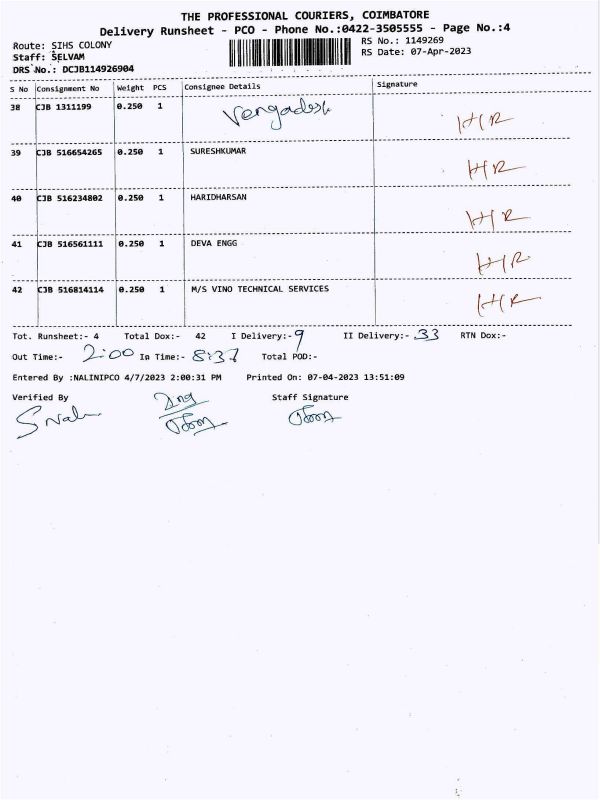 THE PROFESSIONAL COURIERS, COIMBATORE
Delivery Runsheet - PCO - Phone No.:0422-3505555 - Page No.:4
Route: SIHS COLONY RS No.: 1149269
Staff: SELVAM RS Date: 07-Apr-2023
DRS No.: DCJB114926904
S No Consignment No Weight PCS Consignee Details Signature
38 CJB 1311199 0.250 1 Vengadesh HR
39 CJB 516654265 0.250 1 SURESHKUMAR HR
40 CJB 516234802 0.250 1 HARIDHARSAN HR
41 CJB 516561111 0.250 1 DEVA ENGG HR
42 CJB 516814114 0.250 1 M/S VINO TECHNICAL SERVICES HR
Tot. Runsheet:- 4 Total Dox:- 42 I Delivery:- 9 II Delivery:- 33 RTN Dox:-
Out Time:- 2:00 In Time:- 8:37 Total POD:-
Entered By :NALINIPCO 4/7/2023 2:00:31 PM Printed On: 07-04-2023 13:51:09
Verified By Staff Signature